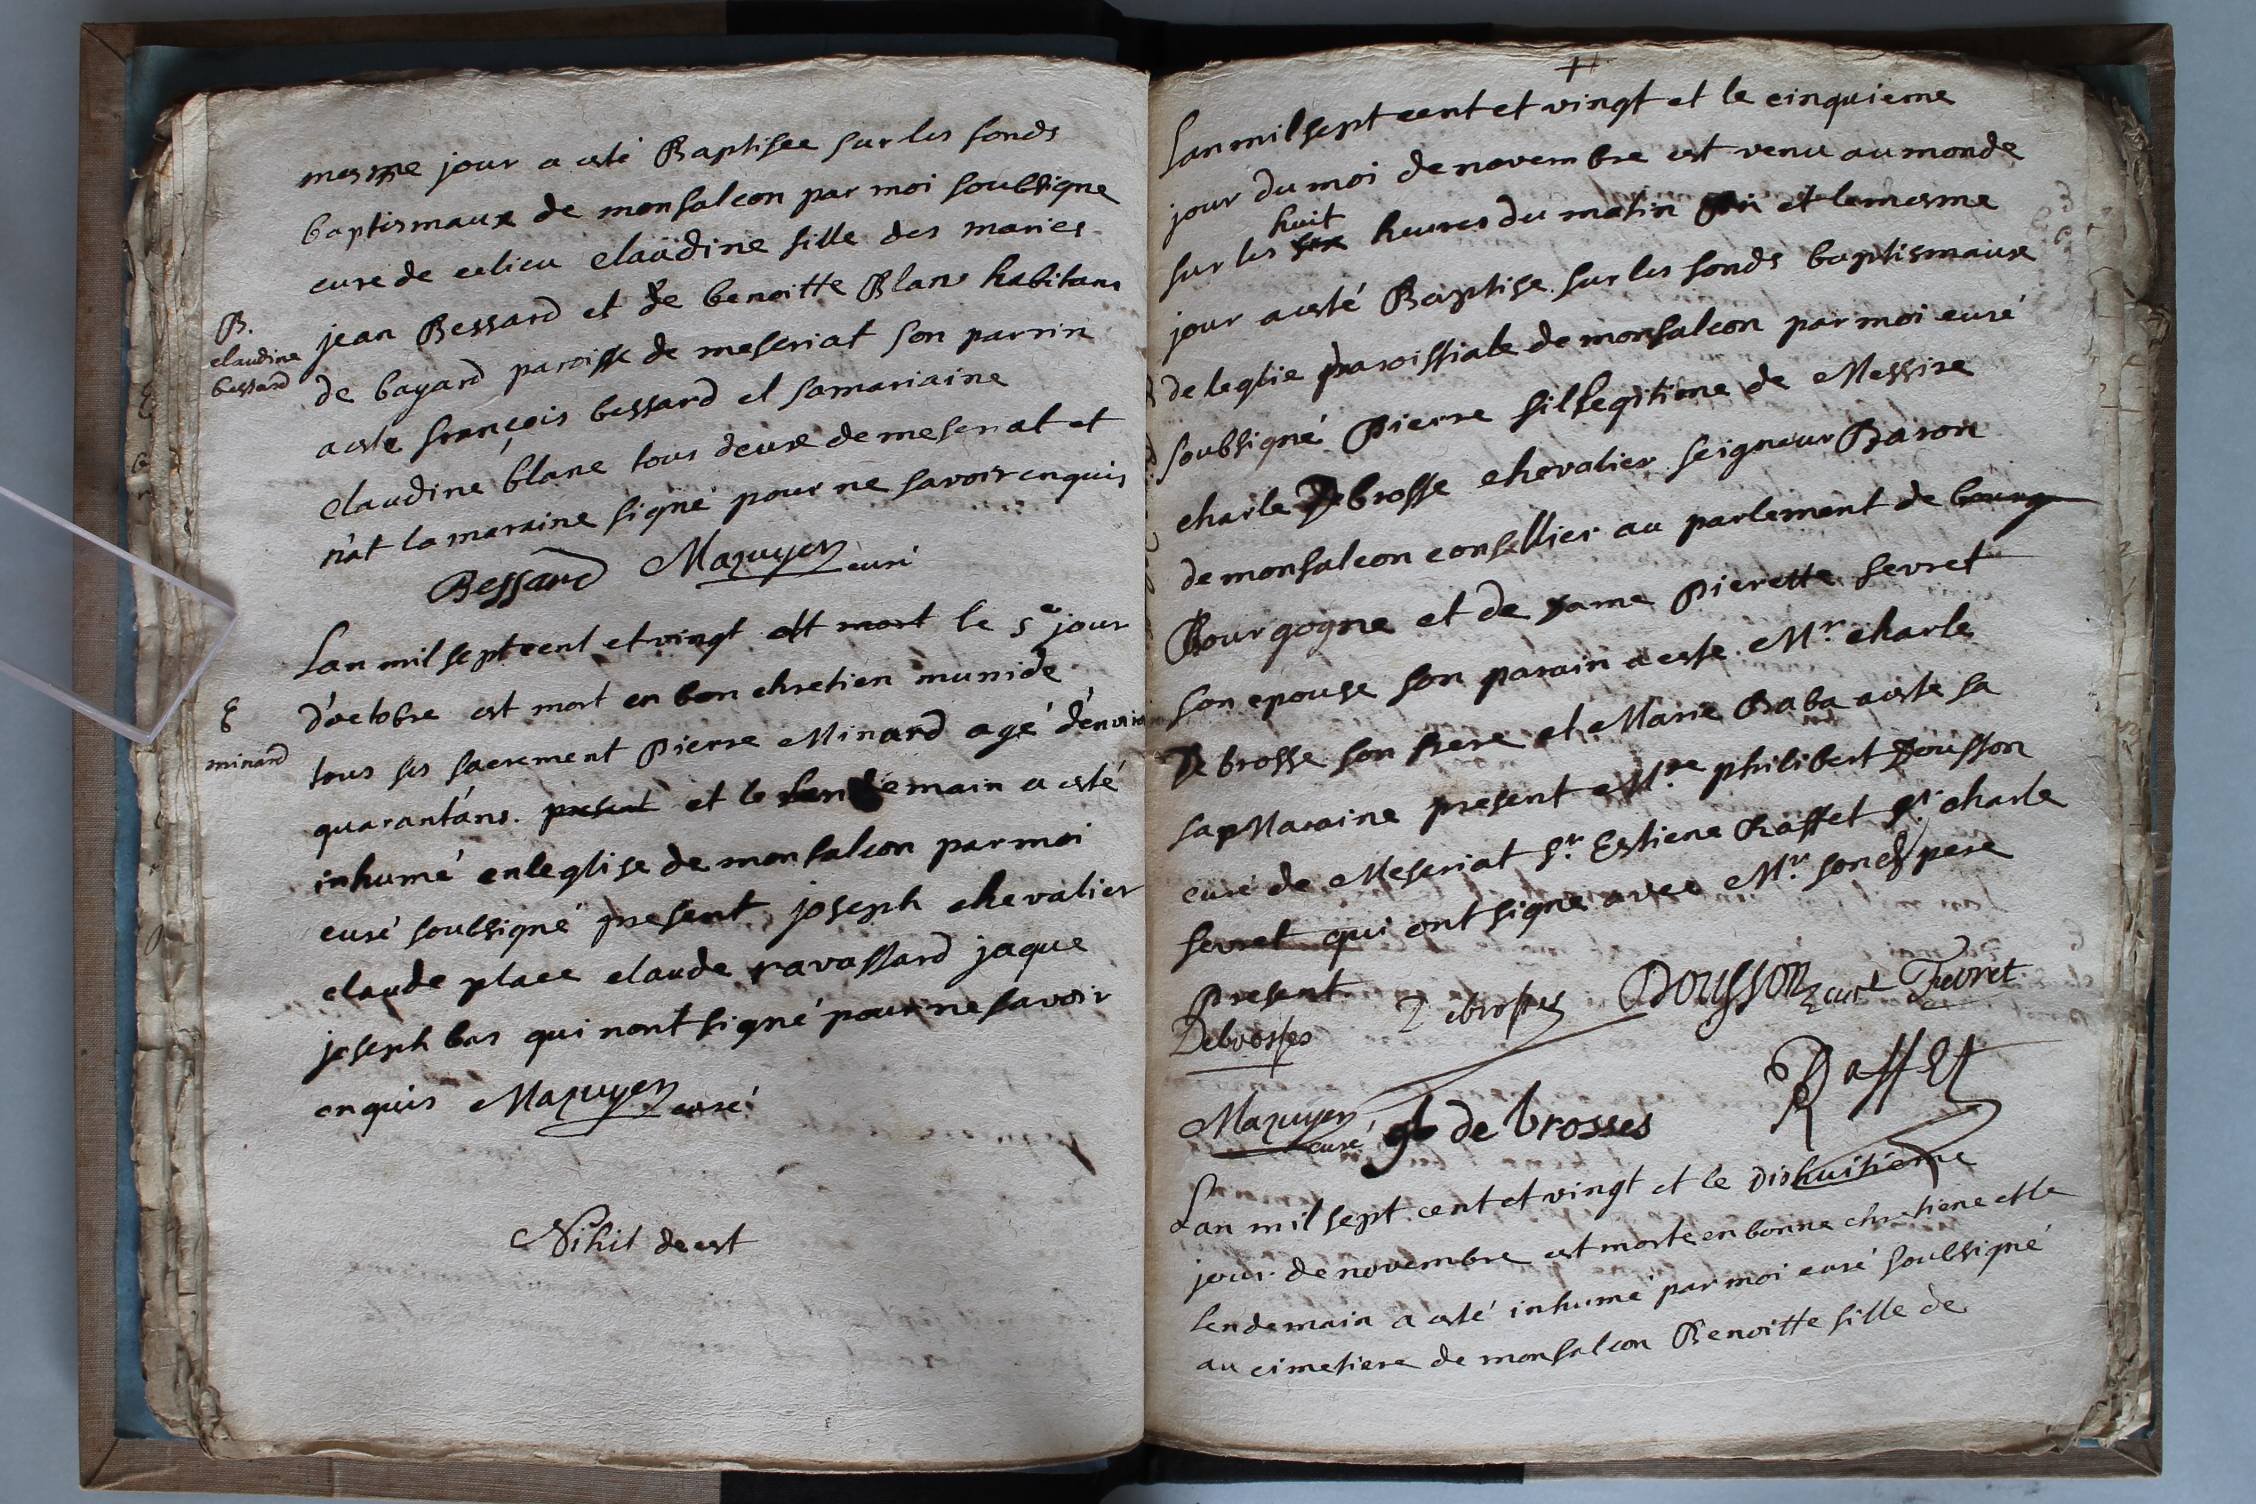 mesme jour a esté Baptisee sur les fonds
baptismaux de monfalcon par moi soubsigne
cure de ce lieu claüdine fille des maries
B.
claudine
bessard
jean Bessard et de benoitte Blanc habitans
de bayard paroisse de meseriat son parrin
a este françois bessard et sa mariaine
claudine blanc tous deux de meseriat et
n'at la maraine signé pour ne savoir enquis
Bessard Mazuyer curé
Lan mil sept cent et vingt est mort le 5e jour
E
minard
d'octobre est mort en bon chretien munide
tous ses sacrement Pierre Minard agé d'environ
quarant'ans. present et le lendemain a esté
inhumé en leglise de monfalcon par moi
curé soubsigné present joseph chevalier
claude place claude ravassard jaque
joseph bas qui nont signé pour ne savoir
enquis Mazuyer curé
Nihil deest
Lan mil sept cent et vingt et le cinquieme
jour du moi de novembre est venu au monde
sur les six huit heures du matin et le mesme
jour a esté Baptise sur les fonds baptismaux
de leglie paroissiale de monfalcon par moi curé
soubsigné Pierre fil legitime de Messire
charle Debrosse chevalier seigneur Baron
de monfalcon consellier au parlement de bourg
Bourgogne et de dame Pierette fevret
son epouse son parain a este Mr charle
De brosse son frere et Marie Baba a este sa
sa Maraine present Mre philibert Dousson
curé de Meseriat Sr Estiene Raffet Sr charle
fevret qui ont signe avec Mr son pere
present
Debrosses Debrosses Dousson curé Fevret
Raffet
Mazuyer curé de brosses
Lan mil sept cent et vingt et le dishuitieme
jour de novembre est morte en bonne chretiene et le
lendemain a esté inhumé par moi curé soubsigné
au cimetiere de monfalcon Benoitte fille de